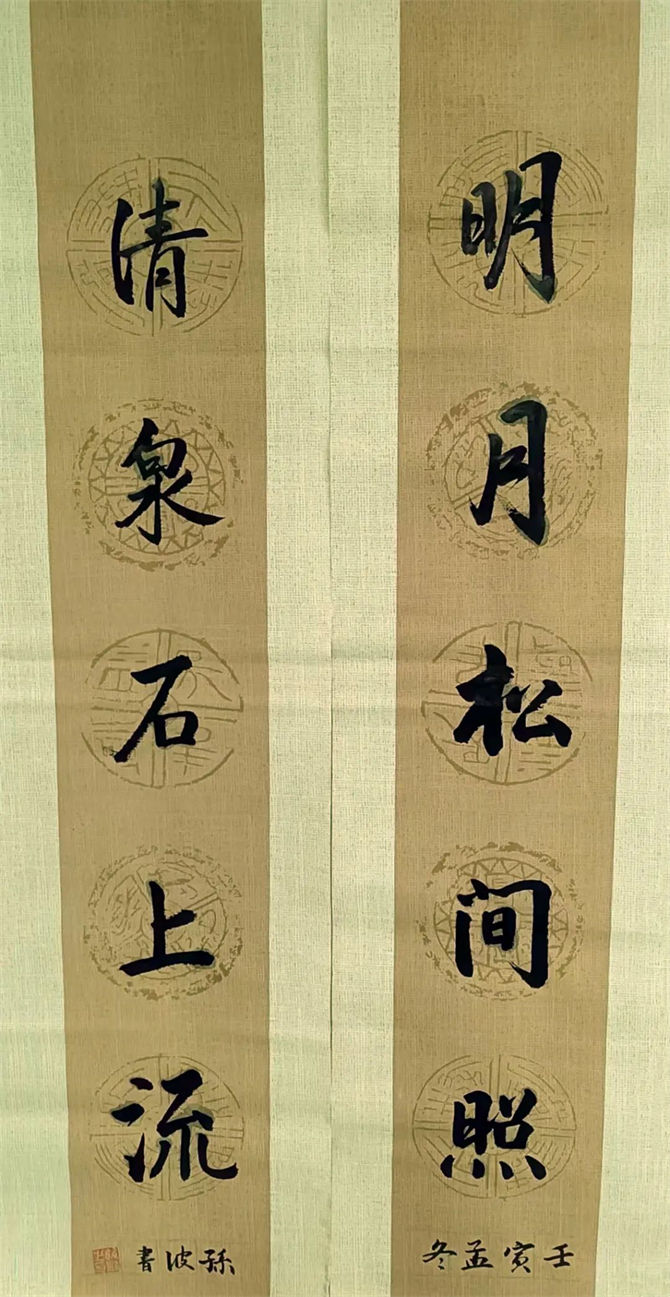 明月松间照
壬寅孟冬
清泉石上流
孫波書